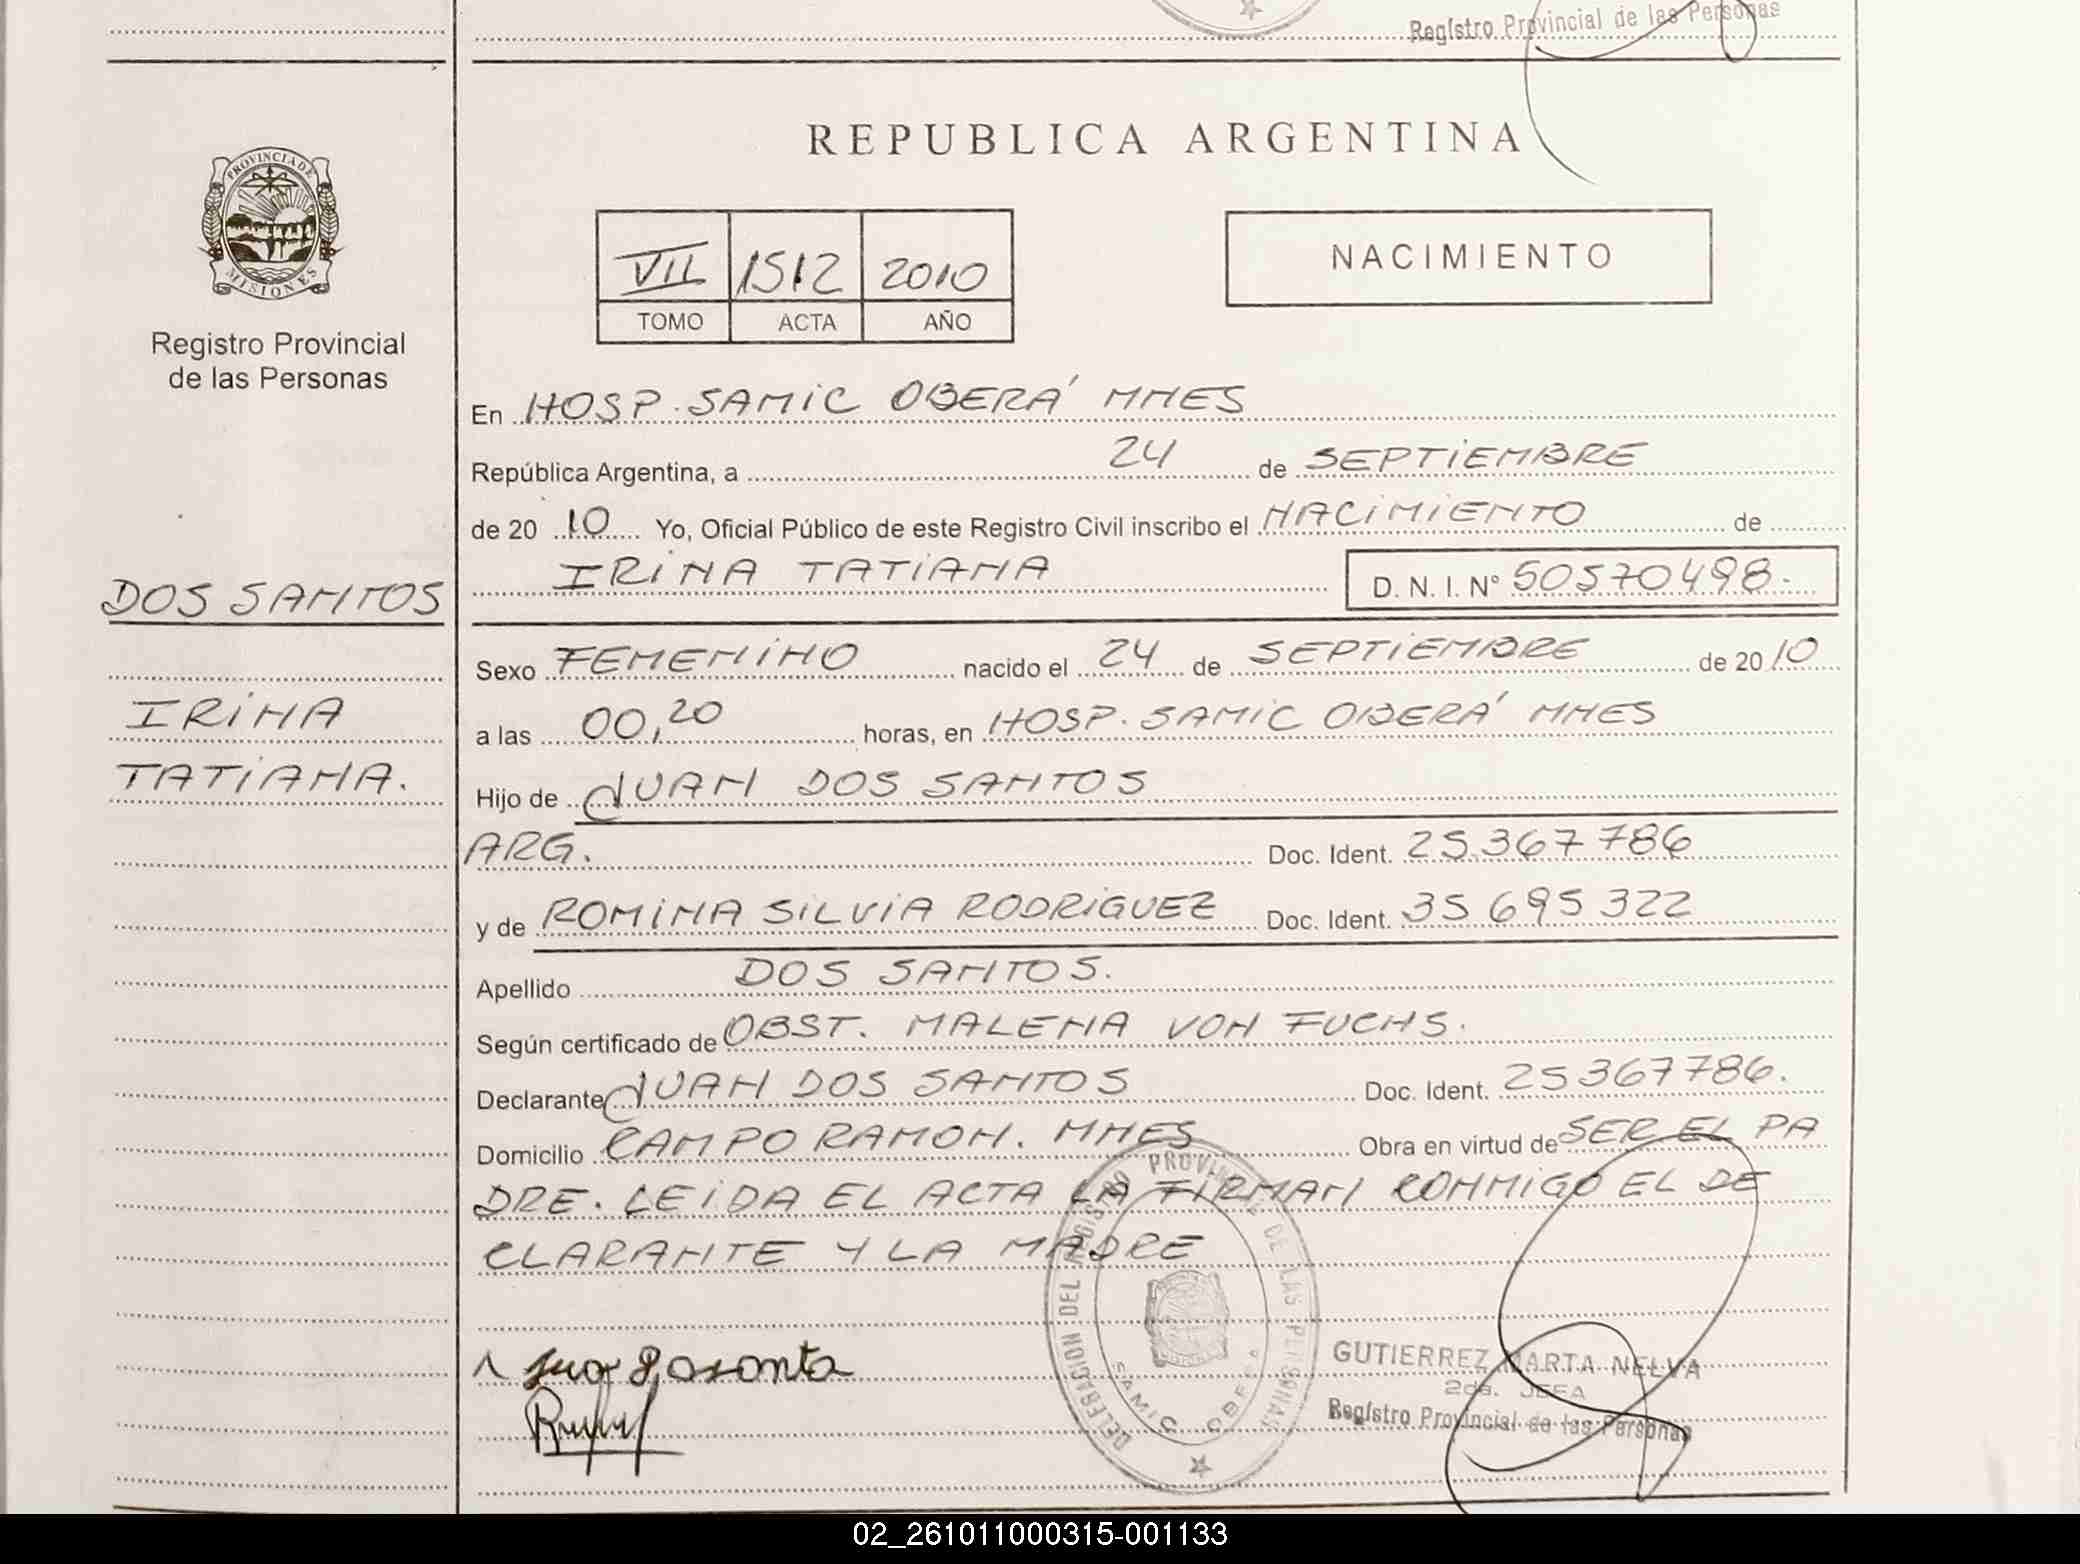 Registro Provincial de las Personas
REPUBLICA ARGENTINA
PROVINCIA DE
MISIONES
Registro Provincial
de las Personas
VII 1512 2010
TOMO ACTA AÑO
NACIMIENTO
En HOSP. SAMIC OBERÁ MNES
República Argentina, a 24 de SEPTIEMBRE
de 20 10 Yo, Oficial Público de este Registro Civil inscribo el NACIMIENTO de
IRINA TATIANA D. N. I. N° 50570498.
DOS SANTOS
IRINA
TATIANA.
Sexo FEMENINO nacido el 24 de SEPTIEMBRE de 20 10
a las 00,20 horas, en HOSP. SAMIC OBERÁ MNES
Hijo de JUAN DOS SANTOS
ARG. Doc. Ident. 25.367 786
y de ROMINA SILVIA RODRIGUEZ Doc. Ident. 35 695 322
Apellido DOS SANTOS.
Según certificado de OBST. MALENA VON FUCHS.
Declarante JUAN DOS SANTOS Doc. Ident. 25367786.
Domicilio CAMPO RAMON. MNES Obra en virtud de SER EL PA
DRE. LEIDA EL ACTA LA FIRMAN CONMIGO EL DE
CLARANTE Y LA MADRE
DELEGACION DEL REGISTRO PROVINCIAL DE LAS PERSONAS
SAMIC OBERA
GUTIERREZ MARTA NELVA
2da. JEFA
Registro Provincial de las Personas
02_261011000315-001133